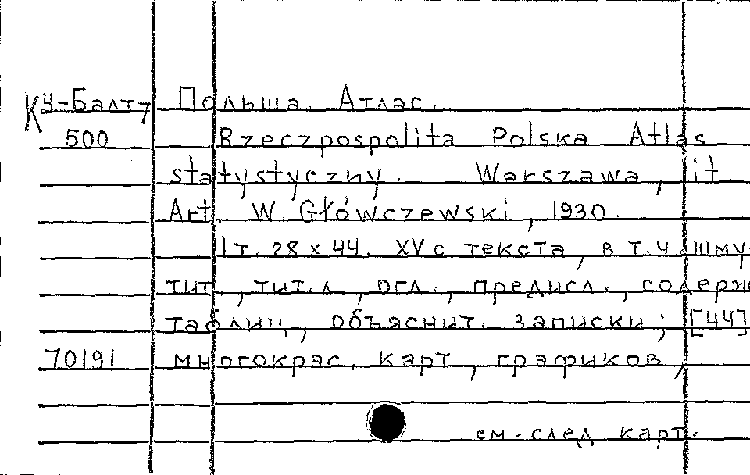 К Ч-Балт7 Польша. Атлас.
500 Rzeczpospolita Polska Atlas
statystyczny. Warszawa, lit
Art. W. Główczewski, 1930.
1т. 28 x 44. XV с текста, в т.ч. шму
тит., тит.л., огл., предисл., содерж
таблиц, объяснит. записки; [44]
70191 многокрас. карт, графиков,
см. след карт.